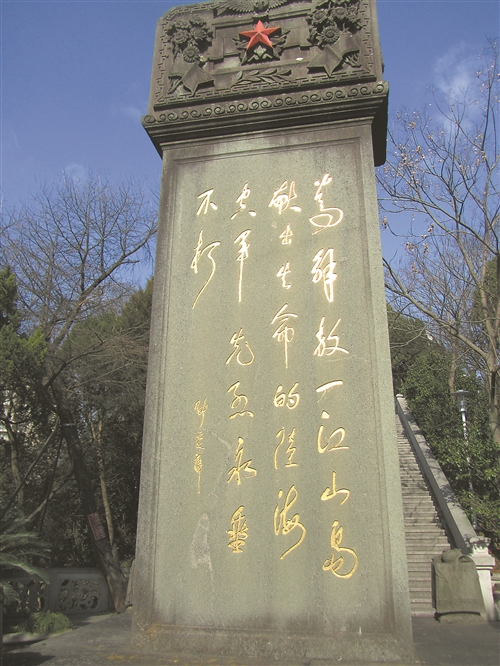 为解放一江山岛
献出生命的陸海
空军先烈永垂
不朽
张爱萍